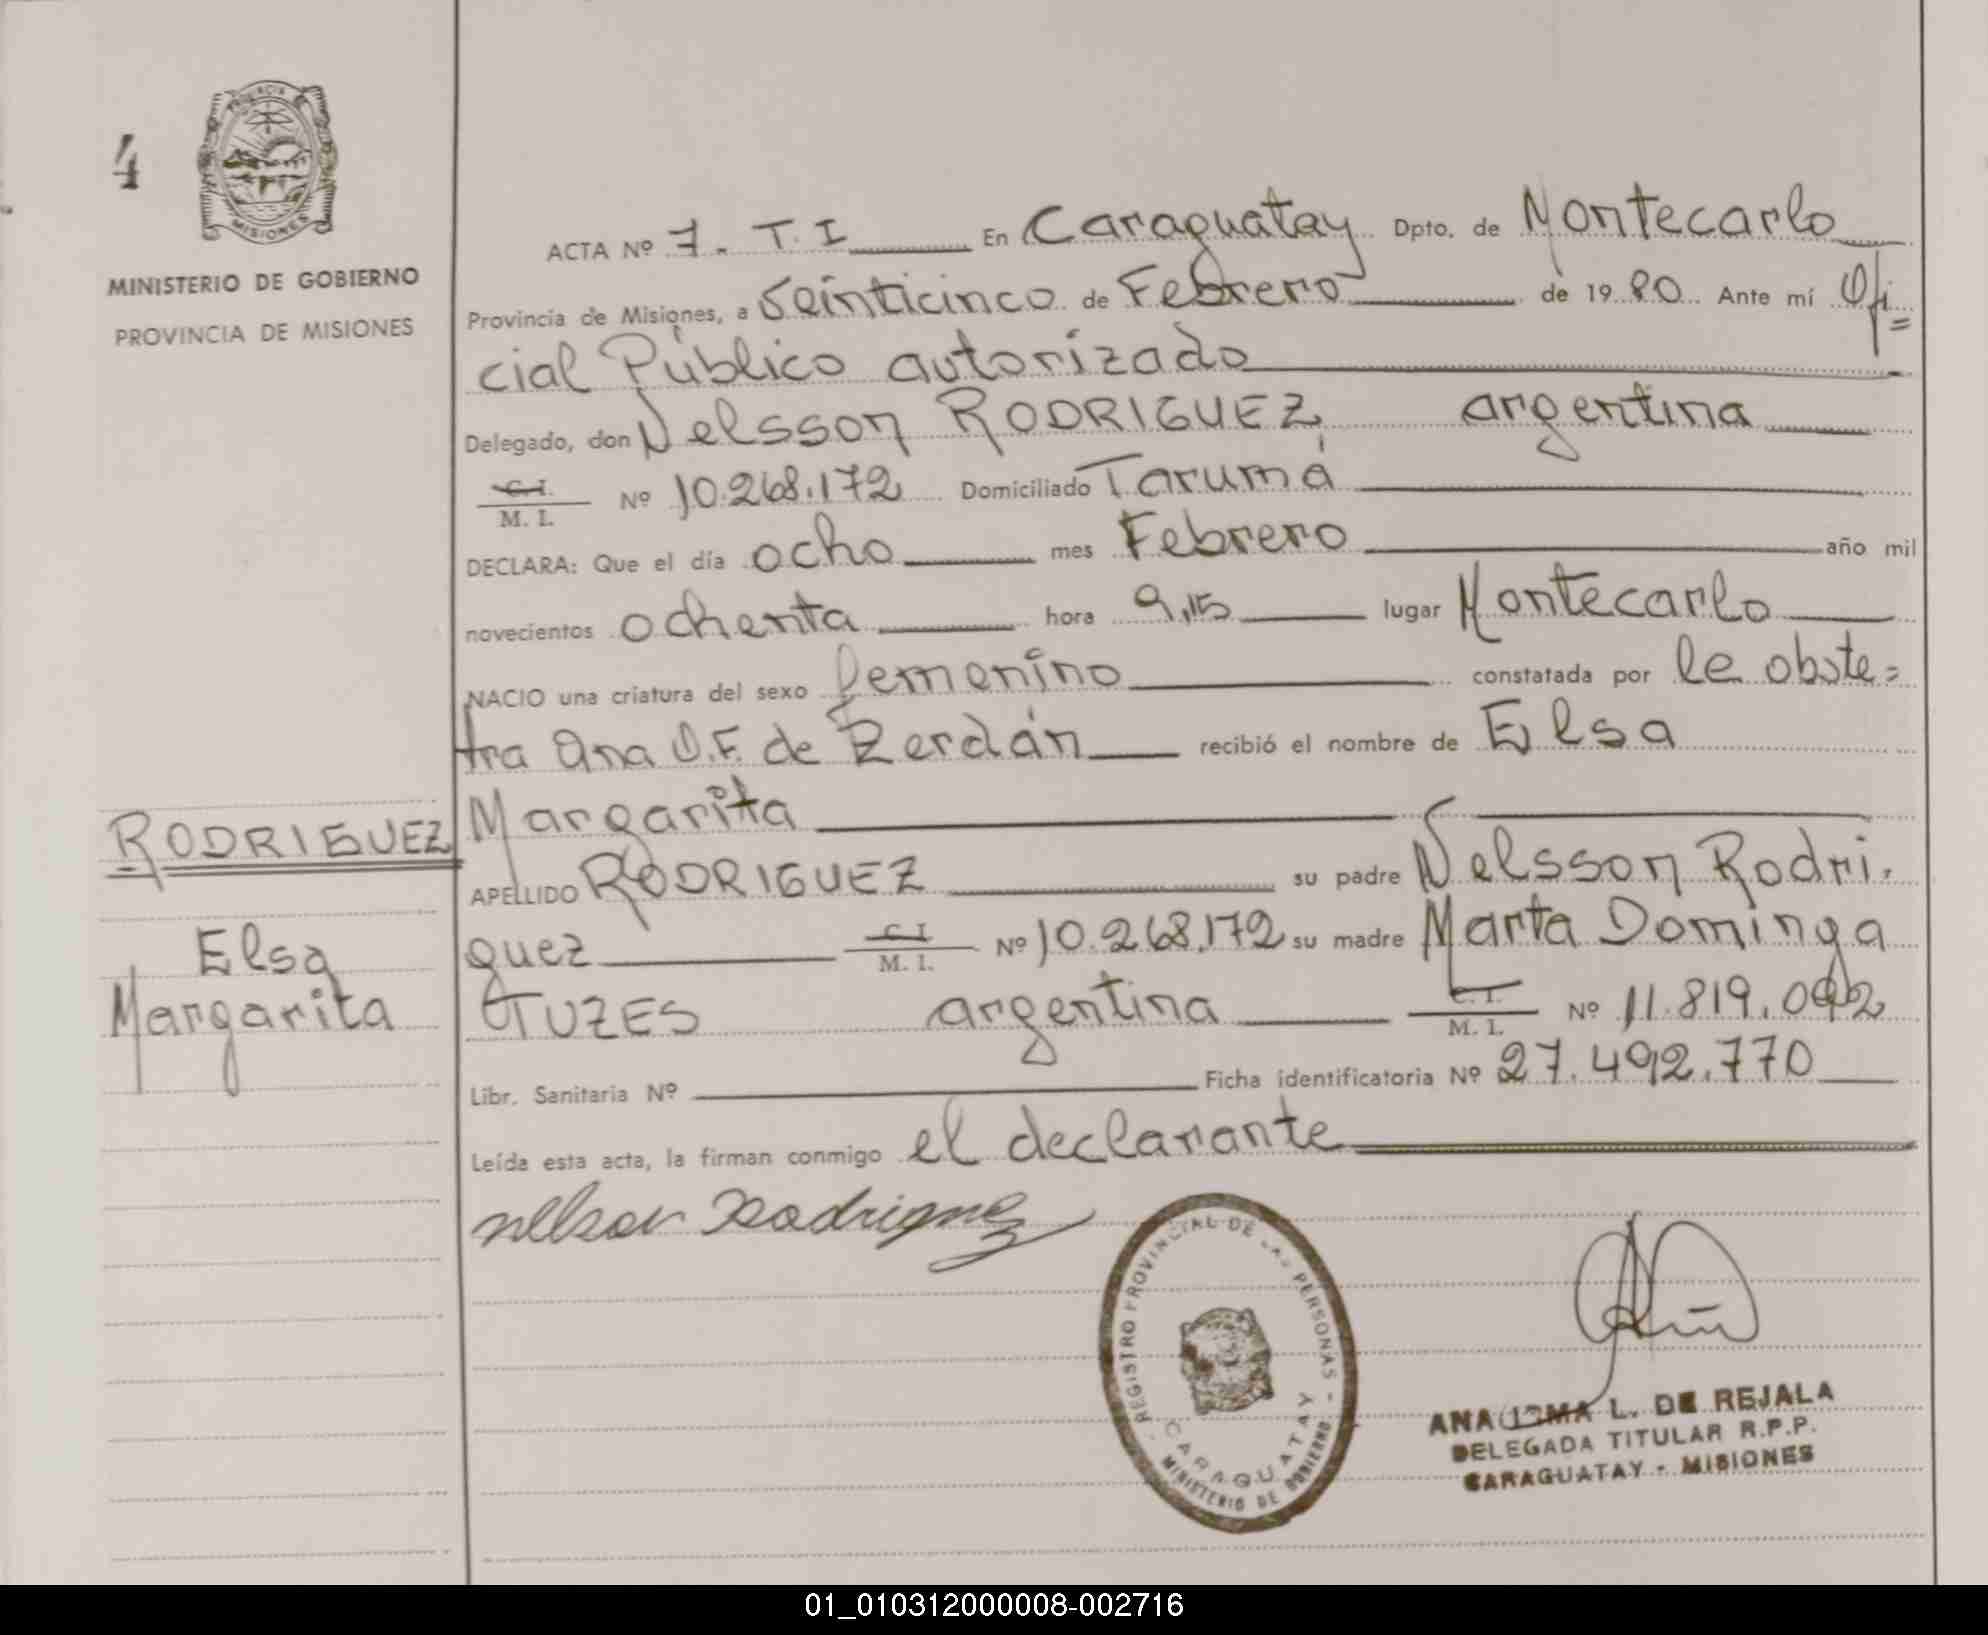 4
PROVINCIA DE
MISIONES
MINISTERIO DE GOBIERNO
PROVINCIA DE MISIONES
RODRIGUEZ
Elsa
Margarita
ACTA Nº 7. T.I En Caraguatay Dpto. de Montecarlo
Provincia de Misiones, a Veinticinco de Febrero de 1980. Ante mí Ofi=
cial Público autorizado
Delegado, don Nelsson RODRIGUEZ, argentina
C.I. M. I. Nº 10.268.172 Domiciliado Tarumá
DECLARA: Que el día ocho mes Febrero año mil
novecientos ochenta hora 9,15 lugar Montecarlo
NACIO una criatura del sexo femenino constatada por le obste=
tra Ana O.F. de Zerdán recibió el nombre de Elsa
Margarita
APELLIDO RODRIGUEZ su padre Nelsson Rodri.
guez C.I M. I. Nº 10.268.172 su madre Marta Dominga
TUZES argentina C.I. M. I. Nº 11.819.092
Libr. Sanitaria Nº Ficha identificatoria Nº 27.492.770
Leída esta acta, la firman conmigo el declarante
nelson Rodriguez
REGISTRO PROVINCIAL DE LAS PERSONAS
CARAGUATAY
MINISTERIO DE GOBIERNO
ANA IRMA L. DE REJALA
DELEGADA TITULAR R.P.P.
CARAGUATAY - MISIONES
01_010312000008-002716